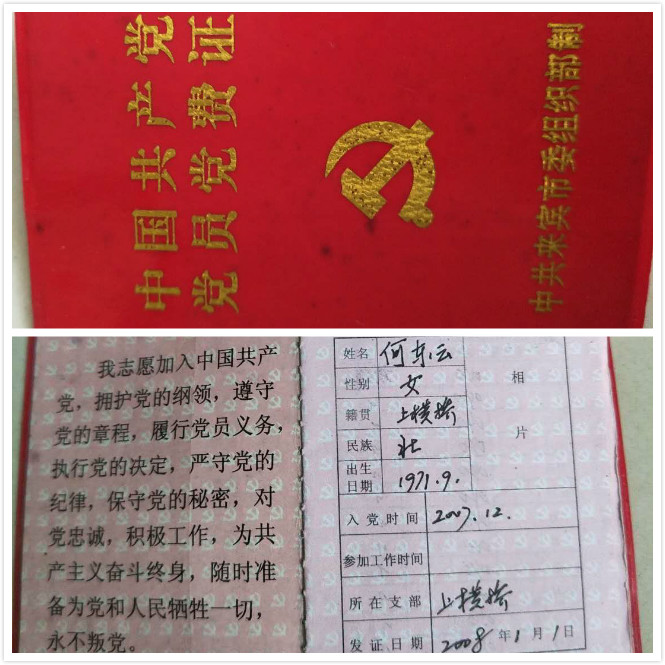 中国共产党
党员党费证
中共来宾市委组织部制
我志愿加入中国共产
党，拥护党的纲领，遵守
党的章程，履行党员义务，
执行党的决定，严守党的
纪律，保守党的秘密，对
党忠诚，积极工作，为共
产主义奋斗终身，随时准
备为党和人民牺牲一切，
永不叛党。
姓名 何东云
性别 女
籍贯 上横桥
民族 壮
出生
日期 1971.9.
相
片
入党时间 2007.12.
参加工作时间
所在支部 上横桥
发证日期 2008年1月1日